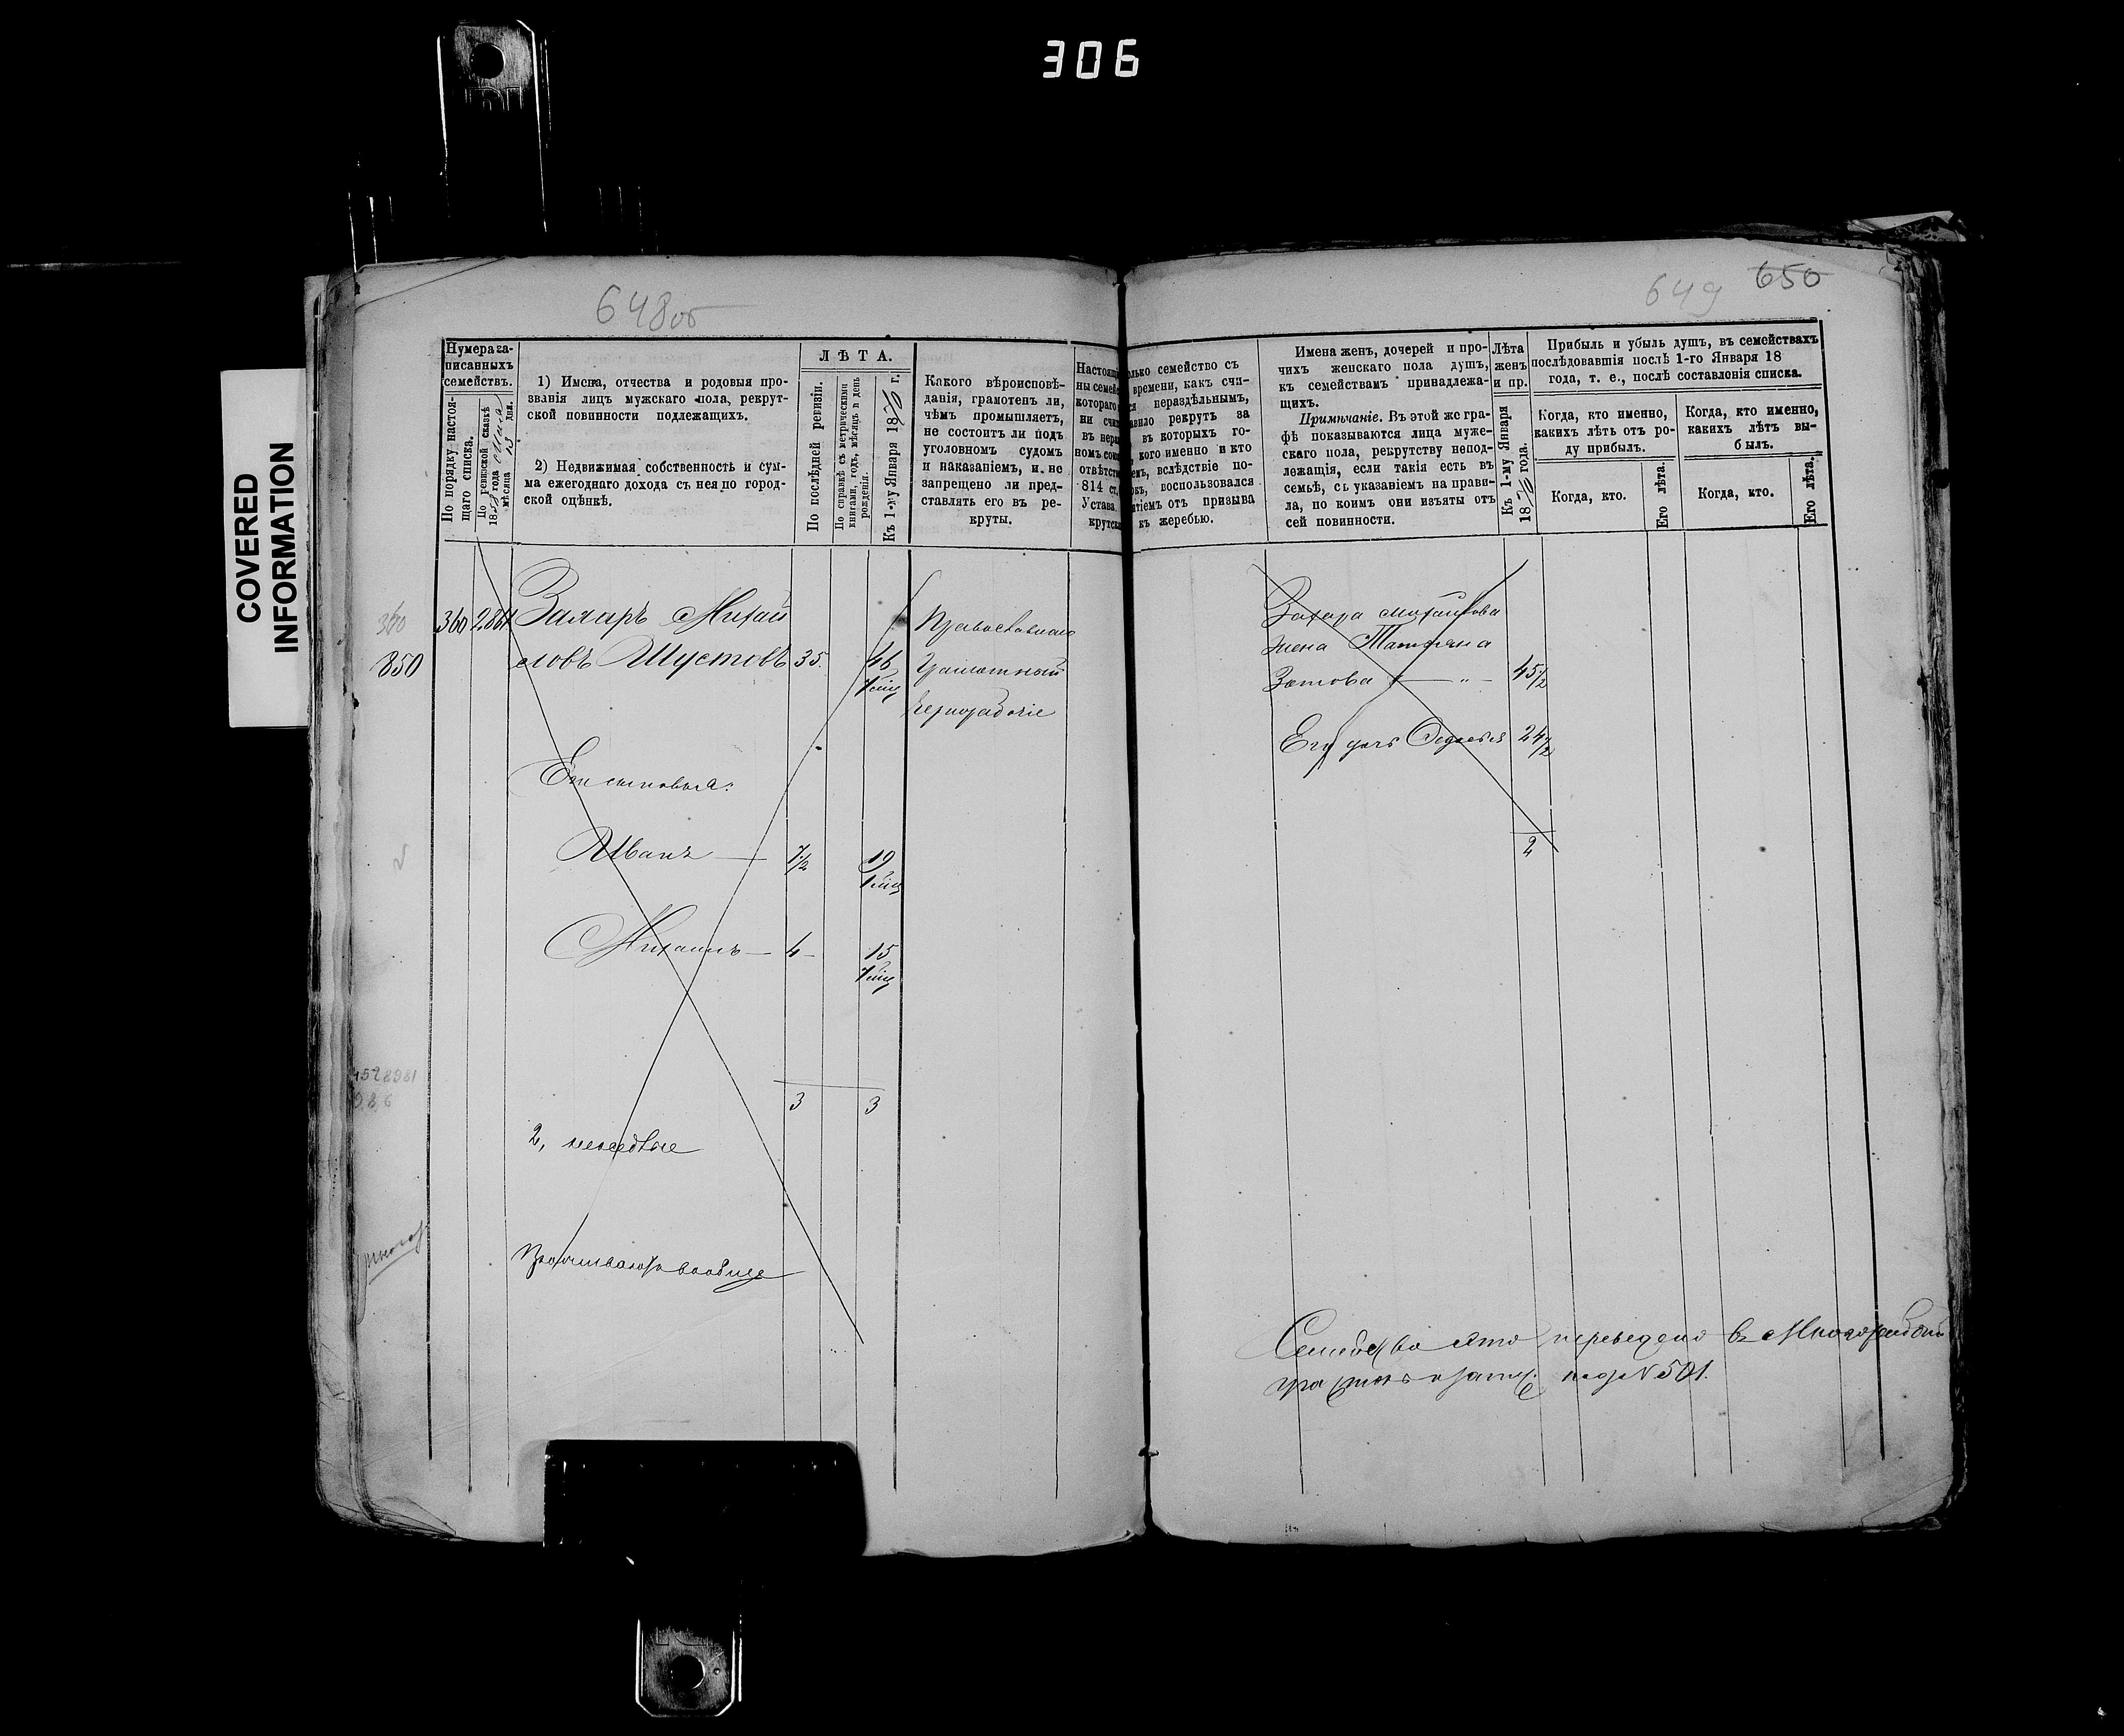 306
COVERED
INFORMATION
648об
649 650
Нумера за-
писанныхъ
семействъ.
По порядку настоя-
щаго списка.
По ревизской сказкѣ
1858 года
мѣсяца 13 дня.
1) Имена, отчества и родовыя про-
званія лицъ мужскаго пола, рекрут-
ской повинности подлежащихъ.
2) Недвижимая собственность и сум-
ма ежегоднаго дохода съ нея по город-
ской оцѣнкѣ.
ЛѢТА.
По послѣдней ревизіи.
По справкѣ съ метрическими
книгами, годъ, мѣсяцъ и день
рожденія.
Къ 1-му Января 18 г.
Какого вѣроисповѣ-
данія, грамотенъ ли,
чѣмъ промышляетъ,
не состоитъ ли подъ
уголовнымъ судомъ
и наказаніемъ, и не
запрещено ли пред-
ставлять его въ ре-
круты.
Настоящ
ны семей
котораго
ни счи
въ нера
номъ сос
отвѣтст
814 ст.
Устава
крутск
олько семейство съ
времени, какъ счи-
ся нераздѣльнымъ,
авило рекрутъ за
въ которыхъ го-
кого именно и кто
емъ, вслѣдствіе по-
окъ, воспользовался
тіемъ отъ призыва
къ жеребью.
Имена женъ, дочерей и про-
чихъ женскаго пола душъ,
къ семействамъ принадлежа-
щихъ.
Примѣчаніе. Въ этой же гра-
фѣ показываются лица муже-
скаго пола, рекрутству непод-
лежащія, если такія есть въ
семьѣ, съ указаніемъ на прави-
ла, по коимъ они изъяты отъ
сей повинности.
Лѣта
женъ
и пр.
Къ 1-му Января
18 года.
Прибыль и убыль душъ, въ семействахъ
послѣдовавшія послѣ 1-го Января 18
года, т. е., послѣ составленія списка.
Когда, кто именно,
какихъ лѣтъ отъ ро-
ду прибылъ.
Когда, кто именно,
какихъ лѣтъ вы-
былъ.
Когда, кто.
Его лѣта.
Когда, кто.
Его лѣта.
360 360 2861 Захаръ Михай
850 ловъ Шустовъ 35. 46
Православнаго
Грамотный
Чернорабочіе
Его сыновья:
Иванъ — 7½ 19
Михаилъ — 4 — 15
3 3
2, неимѣютъ
Проживаютъ вообще
Захара Михайлова
жена Татьяна
Зотова — „ — 45½
Его дочь 24½
2
Семейство это переведено въ Многорабочій
участокъ и запис. подъ № 501.